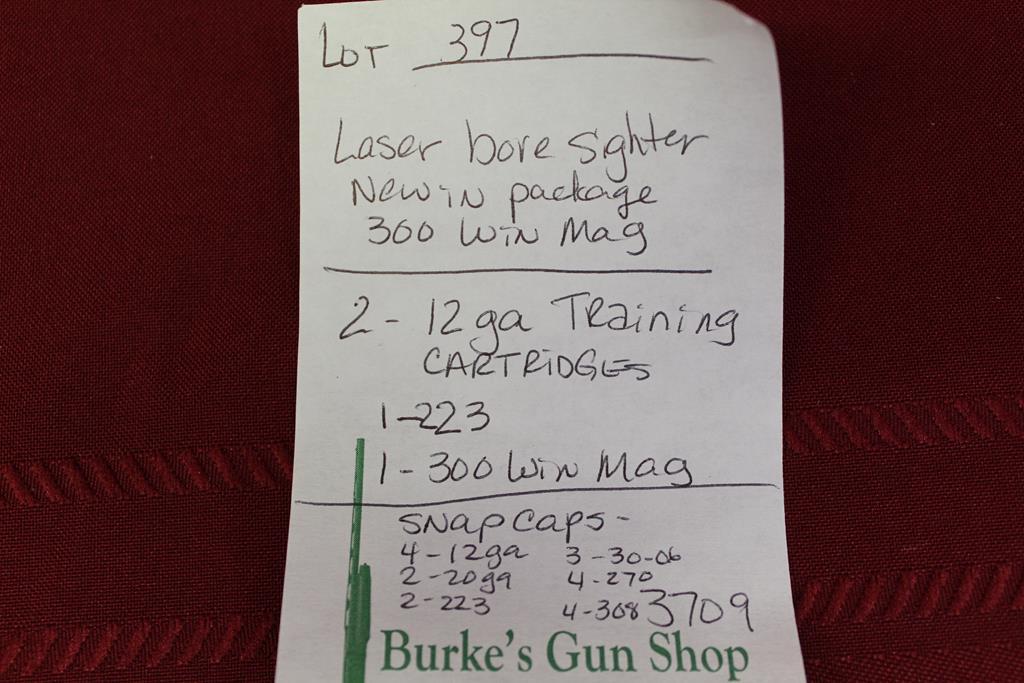 LOT 397
Laser bore sighter
New in package
300 Win Mag
2 - 12ga Training
CARTRIDGES
1-223
1-300 Win Mag
SNAP CAPS-
4-12ga 3-30-06
2-20ga 4-270
2-223 4-308 3709
Burke's Gun Shop